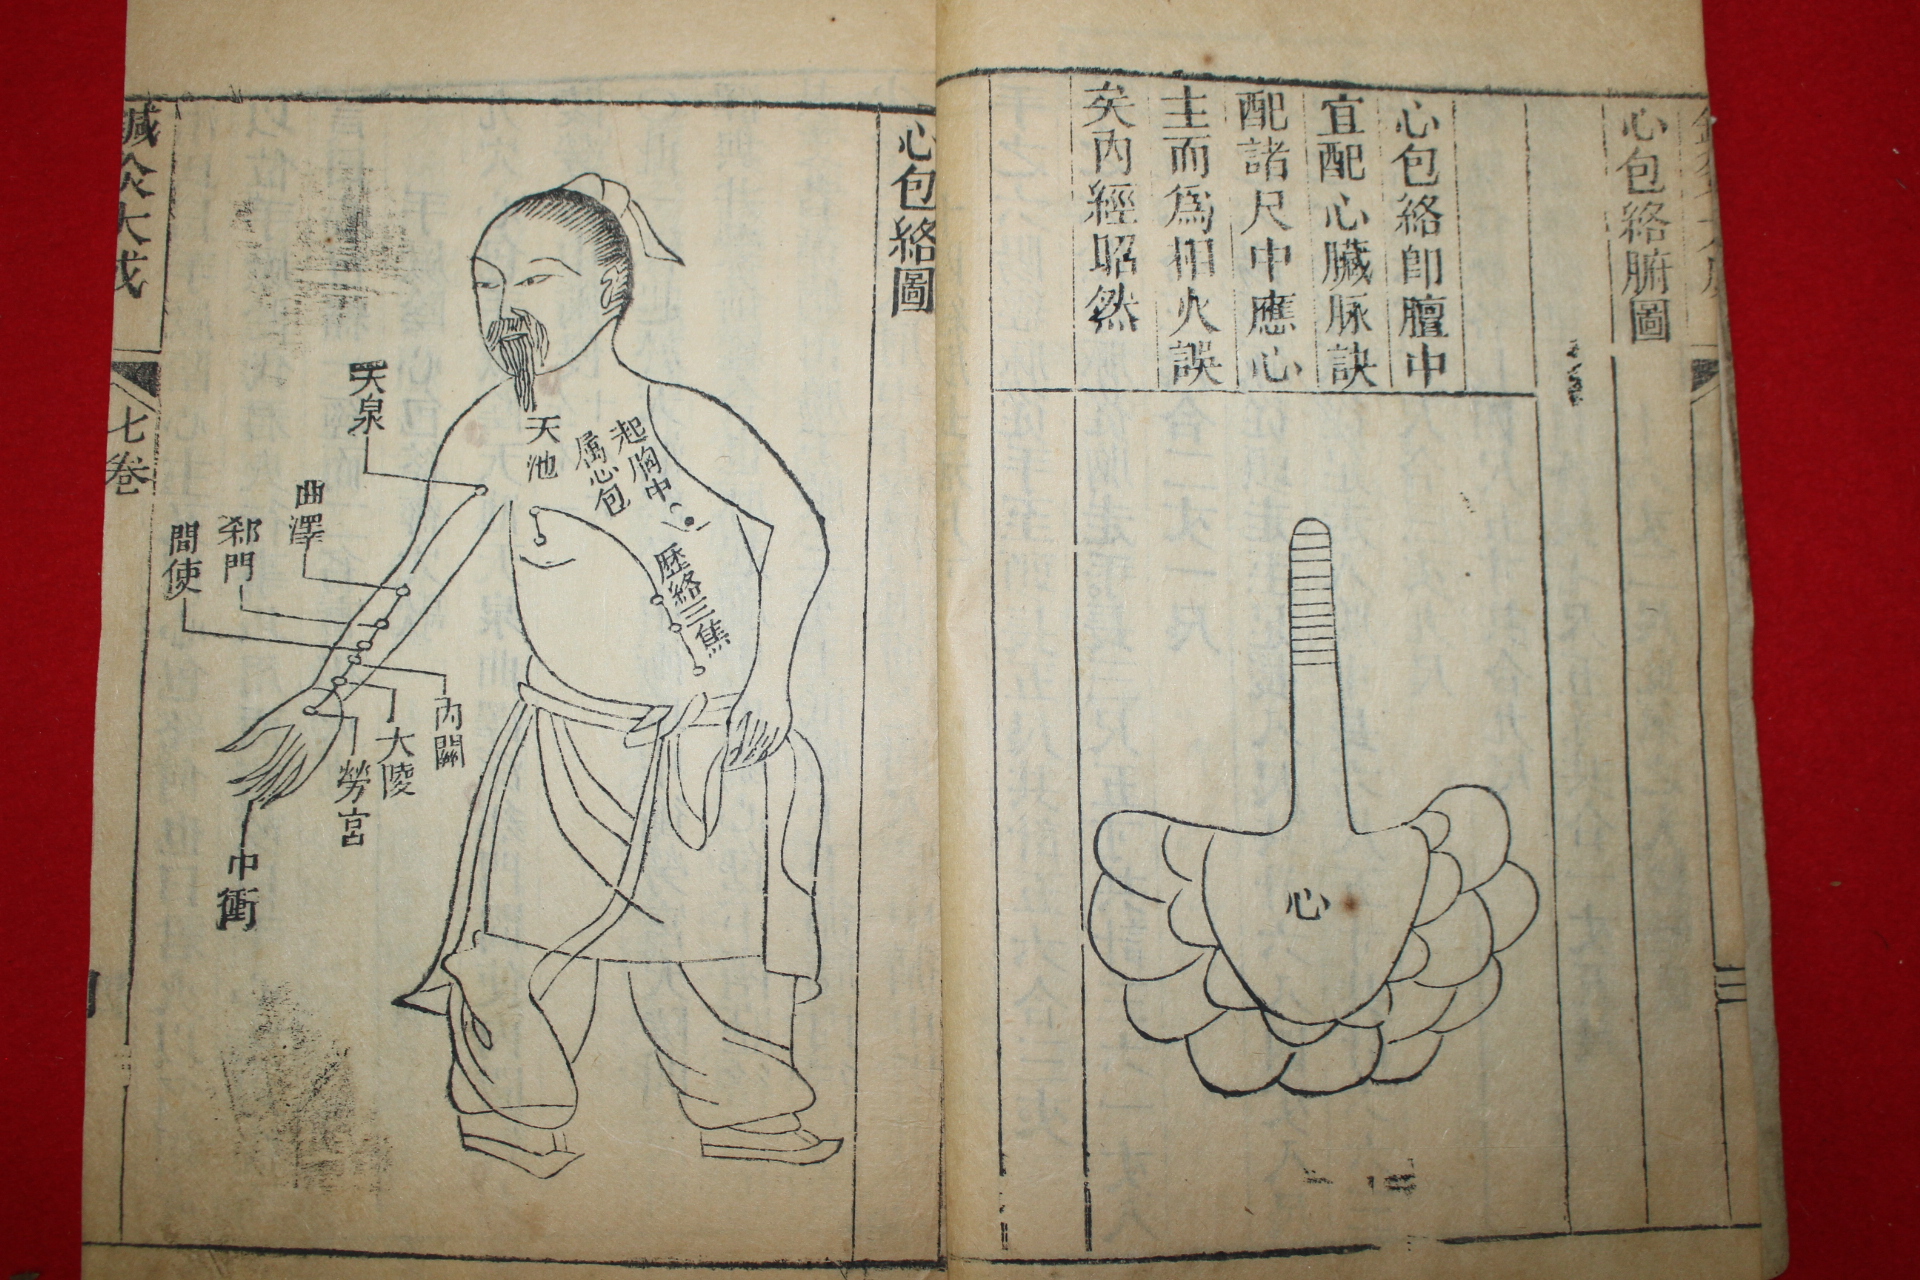 心包絡腑圖
心包絡即膻中
宜配心臟脉訣
配諸尺中應心
主而爲相火誤
矣内經昭然
心
心包絡圖
起胸中
属心包
歷絡三焦
天池
天泉
曲澤
郄門
間使
内關
大陵
勞宮
中衝
鍼灸大成
七卷